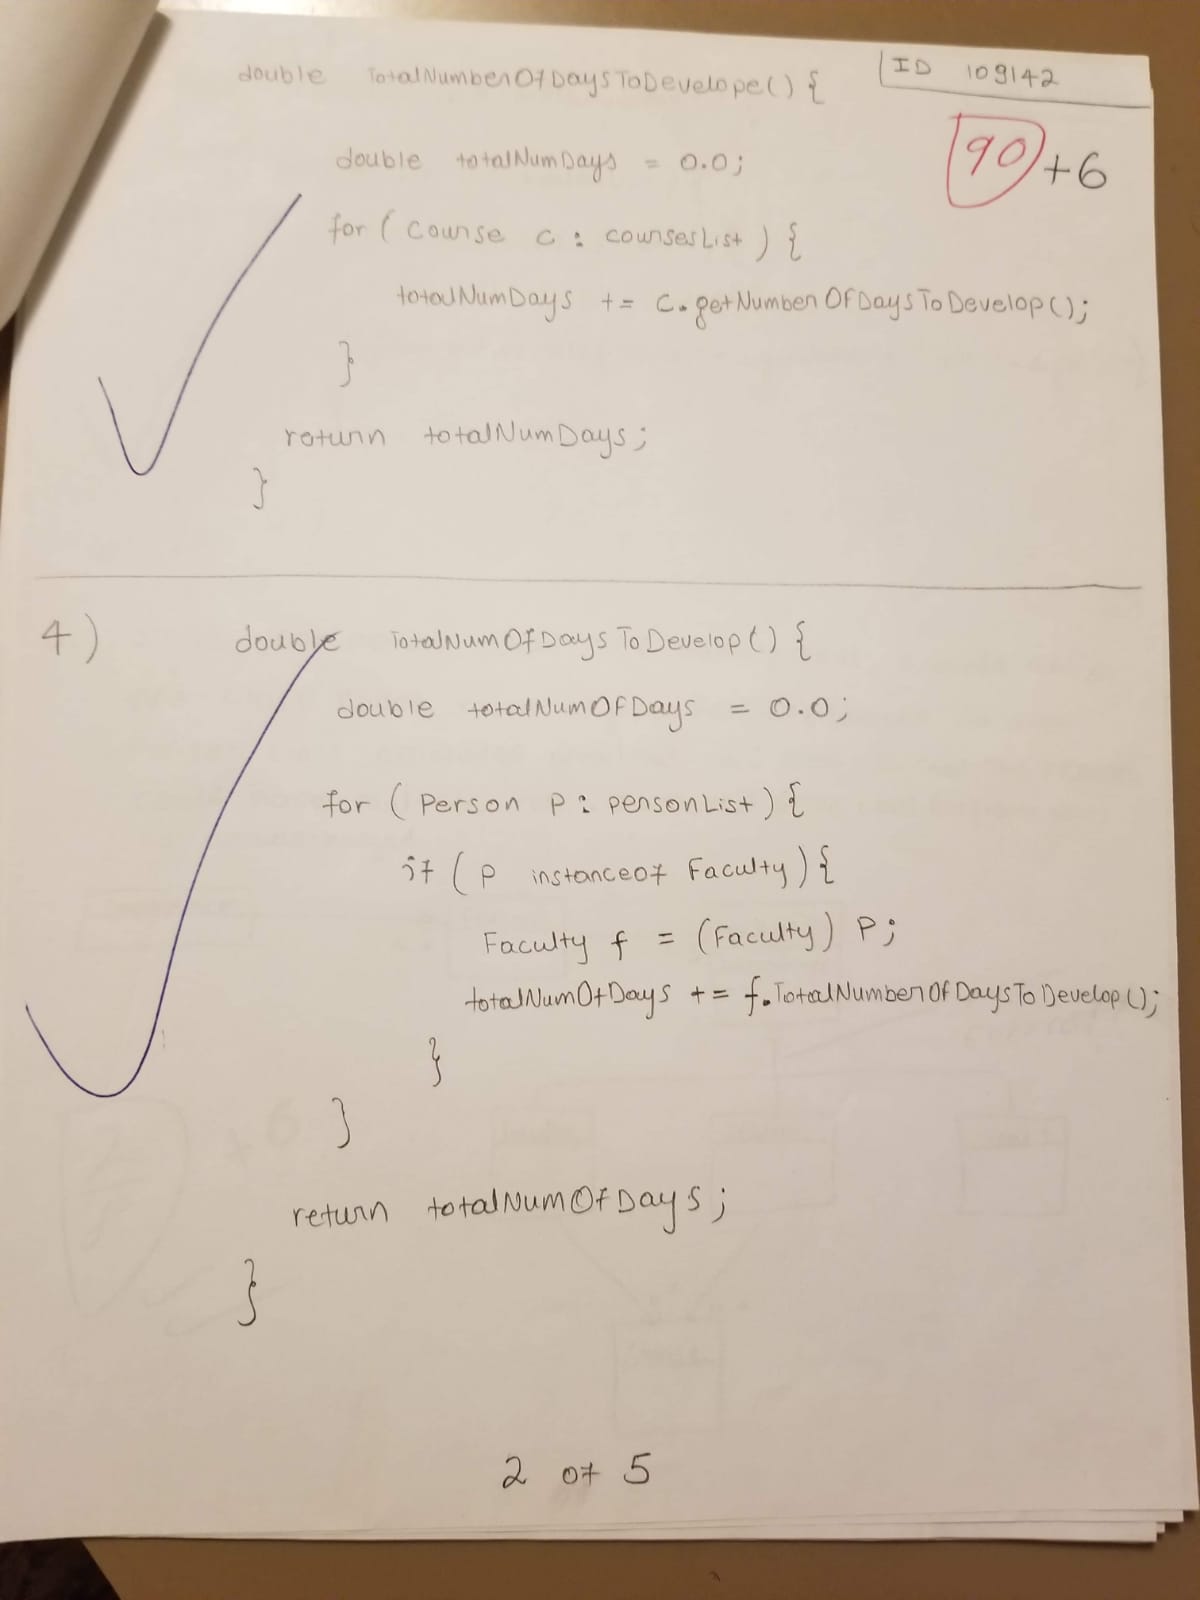 ID 109142
double TotalNumberOfDaysToDevelope() {
90 +6
double totalNumDays = 0.0;
for ( Course c : coursesList ) {
totalNumDays += c.getNumberOfDaysToDevelop();
}
return totalNumDays;
}
4) double TotalNumOfDaysToDevelop() {
double totalNumOfDays = 0.0;
for ( Person p : personList ) {
if ( p instanceof Faculty ) {
Faculty f = (Faculty) p;
totalNumOfDays += f.TotalNumberOfDaysToDevelop();
}
}
return totalNumOfDays;
}
2 of 5